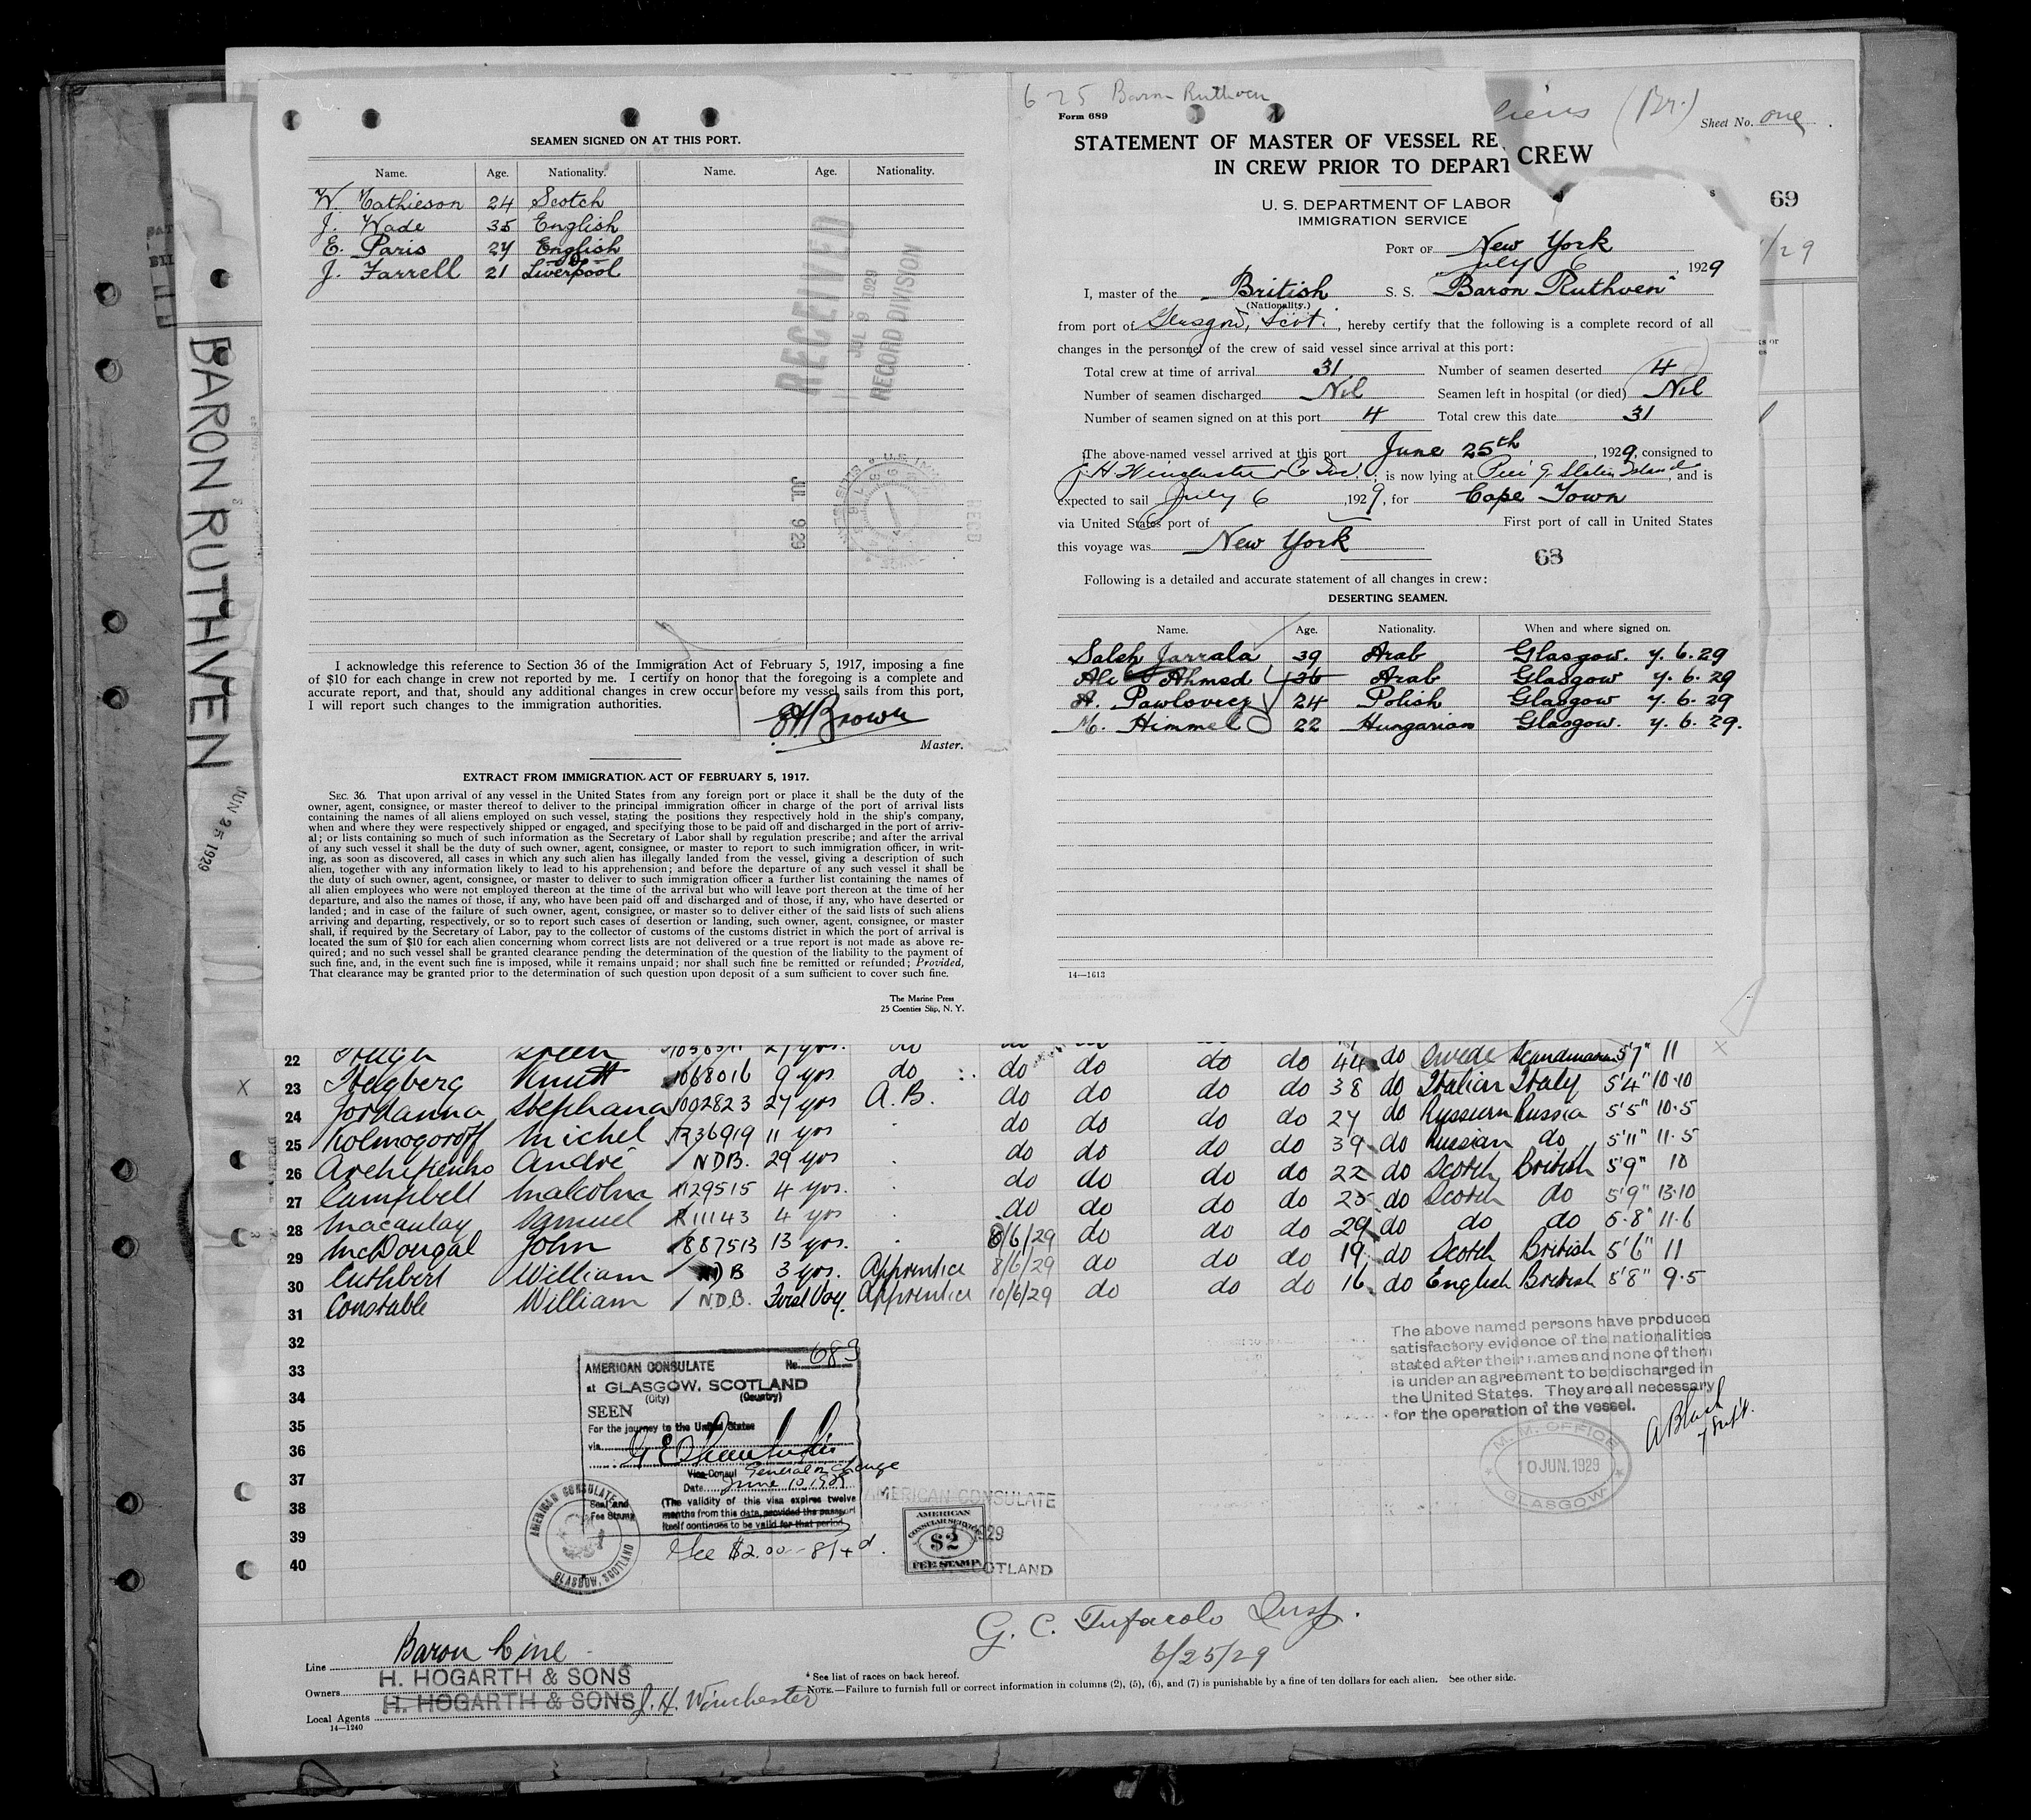 BARON RUTHVEN
JUN 25 1929
SEAMEN SIGNED ON AT THIS PORT.
Name. Age. Nationality. Name. Age. Nationality.
W. Mathieson 24 Scotch
J. Wade 35 English
E. Paris 27 English
J. Farrell 21 Liverpool
RECEIVED
JUL 9 1929
RECORD DIVISION
JUL 9 929
I acknowledge this reference to Section 36 of the Immigration Act of February 5, 1917, imposing a fine
of $10 for each change in crew not reported by me. I certify on honor that the foregoing is a complete and
accurate report, and that, should any additional changes in crew occur before my vessel sails from this port,
I will report such changes to the immigration authorities.
Brown
Master.
EXTRACT FROM IMMIGRATION ACT OF FEBRUARY 5, 1917.
SEC. 36. That upon arrival of any vessel in the United States from any foreign port or place it shall be the duty of the
owner, agent, consignee, or master thereof to deliver to the principal immigration officer in charge of the port of arrival lists
containing the names of all aliens employed on such vessel, stating the positions they respectively hold in the ship's company,
when and where they were respectively shipped or engaged, and specifying those to be paid off and discharged in the port of arriv-
al; or lists containing so much of such information as the Secretary of Labor shall by regulation prescribe; and after the arrival
of any such vessel it shall be the duty of such owner, agent, consignee, or master to report to such immigration officer, in writ-
ing, as soon as discovered, all cases in which any such alien has illegally landed from the vessel, giving a description of such
alien, together with any information likely to lead to his apprehension; and before the departure of any such vessel it shall be
the duty of such owner, agent, consignee, or master to deliver to such immigration officer a further list containing the names of
all alien employees who were not employed thereon at the time of the arrival but who will leave port thereon at the time of her
departure, and also the names of those, if any, who have been paid off and discharged and of those, if any, who have deserted or
landed; and in case of the failure of such owner, agent, consignee, or master so to deliver either of the said lists of such aliens
arriving and departing, respectively, or so to report such cases of desertion or landing, such owner, agent, consignee, or master
shall, if required by the Secretary of Labor, pay to the collector of customs of the customs district in which the port of arrival is
located the sum of $10 for each alien concerning whom correct lists are not delivered or a true report is not made as above re-
quired; and no such vessel shall be granted clearance pending the determination of the question of the liability to the payment of
such fine, and, in the event such fine is imposed, while it remains unpaid; nor shall such fine be remitted or refunded; Provided,
That clearance may be granted prior to the determination of such question upon deposit of a sum sufficient to cover such fine.
The Marine Press
25 Coenties Slip, N. Y.
6-25 Baron Ruthven
Form 689
liens (Br.) Sheet No. one
STATEMENT OF MASTER OF VESSEL RE
IN CREW PRIOR TO DEPART
CREW
69
U. S. DEPARTMENT OF LABOR
IMMIGRATION SERVICE
PORT OF New York
July 6, 1929
I, master of the British S. S. Baron Ruthven
(Nationality.)
from port of Glasgow, Scot., hereby certify that the following is a complete record of all
changes in the personnel of the crew of said vessel since arrival at this port:
Total crew at time of arrival 31 Number of seamen deserted 4
Number of seamen discharged Nil Seamen left in hospital (or died) Nil
Number of seamen signed on at this port 4 Total crew this date 31
The above-named vessel arrived at this port June 25th, 1929, consigned to
J. H. Winchester & Co Inc., is now lying at Pier 9. Staten Island, and is
expected to sail July 6, 1929, for Cape Town
via United States port of First port of call in United States
this voyage was New York
68
Following is a detailed and accurate statement of all changes in crew:
DESERTING SEAMEN.
Name. Age. Nationality. When and where signed on.
Saleh Jarrala 39 Arab Glasgow. 7.6.29
Ali Ahmed 36 Arab Glasgow 7.6.29
A. Pawlovicz 24 Polish Glasgow 7.6.29
M. Himmel 22 Hungarian Glasgow. 7.6.29.
14—1613
22 do do do do 44 do Swede Scandinavian 5'7" 11
23 Hegberg Knutt 1068016 9 yrs do do do do do 38 do Italian Italy 5'4" 10.10
24 Jordanna Stephana 1092823 27 yrs A.B. do do do do 27 do Russian Russia 5'5" 10.5
25 Kolmogoroff Michel R36919 11 yrs do do do do 39 do Russian do 5'11" 11.5
26 Archipenko André NDB. 29 yrs do do do do 22 do Scotch British 5'9" 10
27 Campbell Malcolm 1129515 4 yrs. do do do do 25 do Scotch do 5'9" 13.10
28 Macaulay Samuel R11143 4 yrs 8/6/29 do do do 29 do do do 5.8" 11.6
29 McDougal John 887513 13 yrs. 8/6/29 do do do 19 do Scotch British 5'6" 11
30 Cuthbert William NDB 3 yrs. Apprentice 10/6/29 do do do 16 do English British 5'8" 9.5
31 Constable William N.D.B. First Voy. Apprentice
32
33
34
35
36
37
38
39
40
AMERICAN CONSULATE No. 689
at GLASGOW, SCOTLAND
(City) (Country)
SEEN
For the journey to the United States
via
Vice Consul General in Charge
Date June 10, 1929
Seal and
Fee Stamp
(The validity of this visa expires twelve
months from this date, provided the passport
itself continues to be valid for that period
AMERICAN CONSULATE
GLASGOW, SCOTLAND
Fee $2.00 - 8/4d.
AMERICAN CONSULATE
AMERICAN
CONSULAR SERVICE
$2
FEE STAMP
1929
SCOTLAND
The above named persons have produced
satisfactory evidence of the nationalities
stated after their names and none of them
is under an agreement to be discharged in
the United States. They are all necessary
for the operation of the vessel.
A Black
Supt.
M. M. OFFICE
10 JUN. 1929
GLASGOW
G. C. Tufarolo Insp.
6/25/29
Line Baron Line
Owners H. HOGARTH & SONS
Local Agents H. HOGARTH & SONS J. H. Winchester
14—1240
* See list of races on back hereof.
NOTE.—Failure to furnish full or correct information in columns (2), (5), (6), and (7) is punishable by a fine of ten dollars for each alien. See other side.